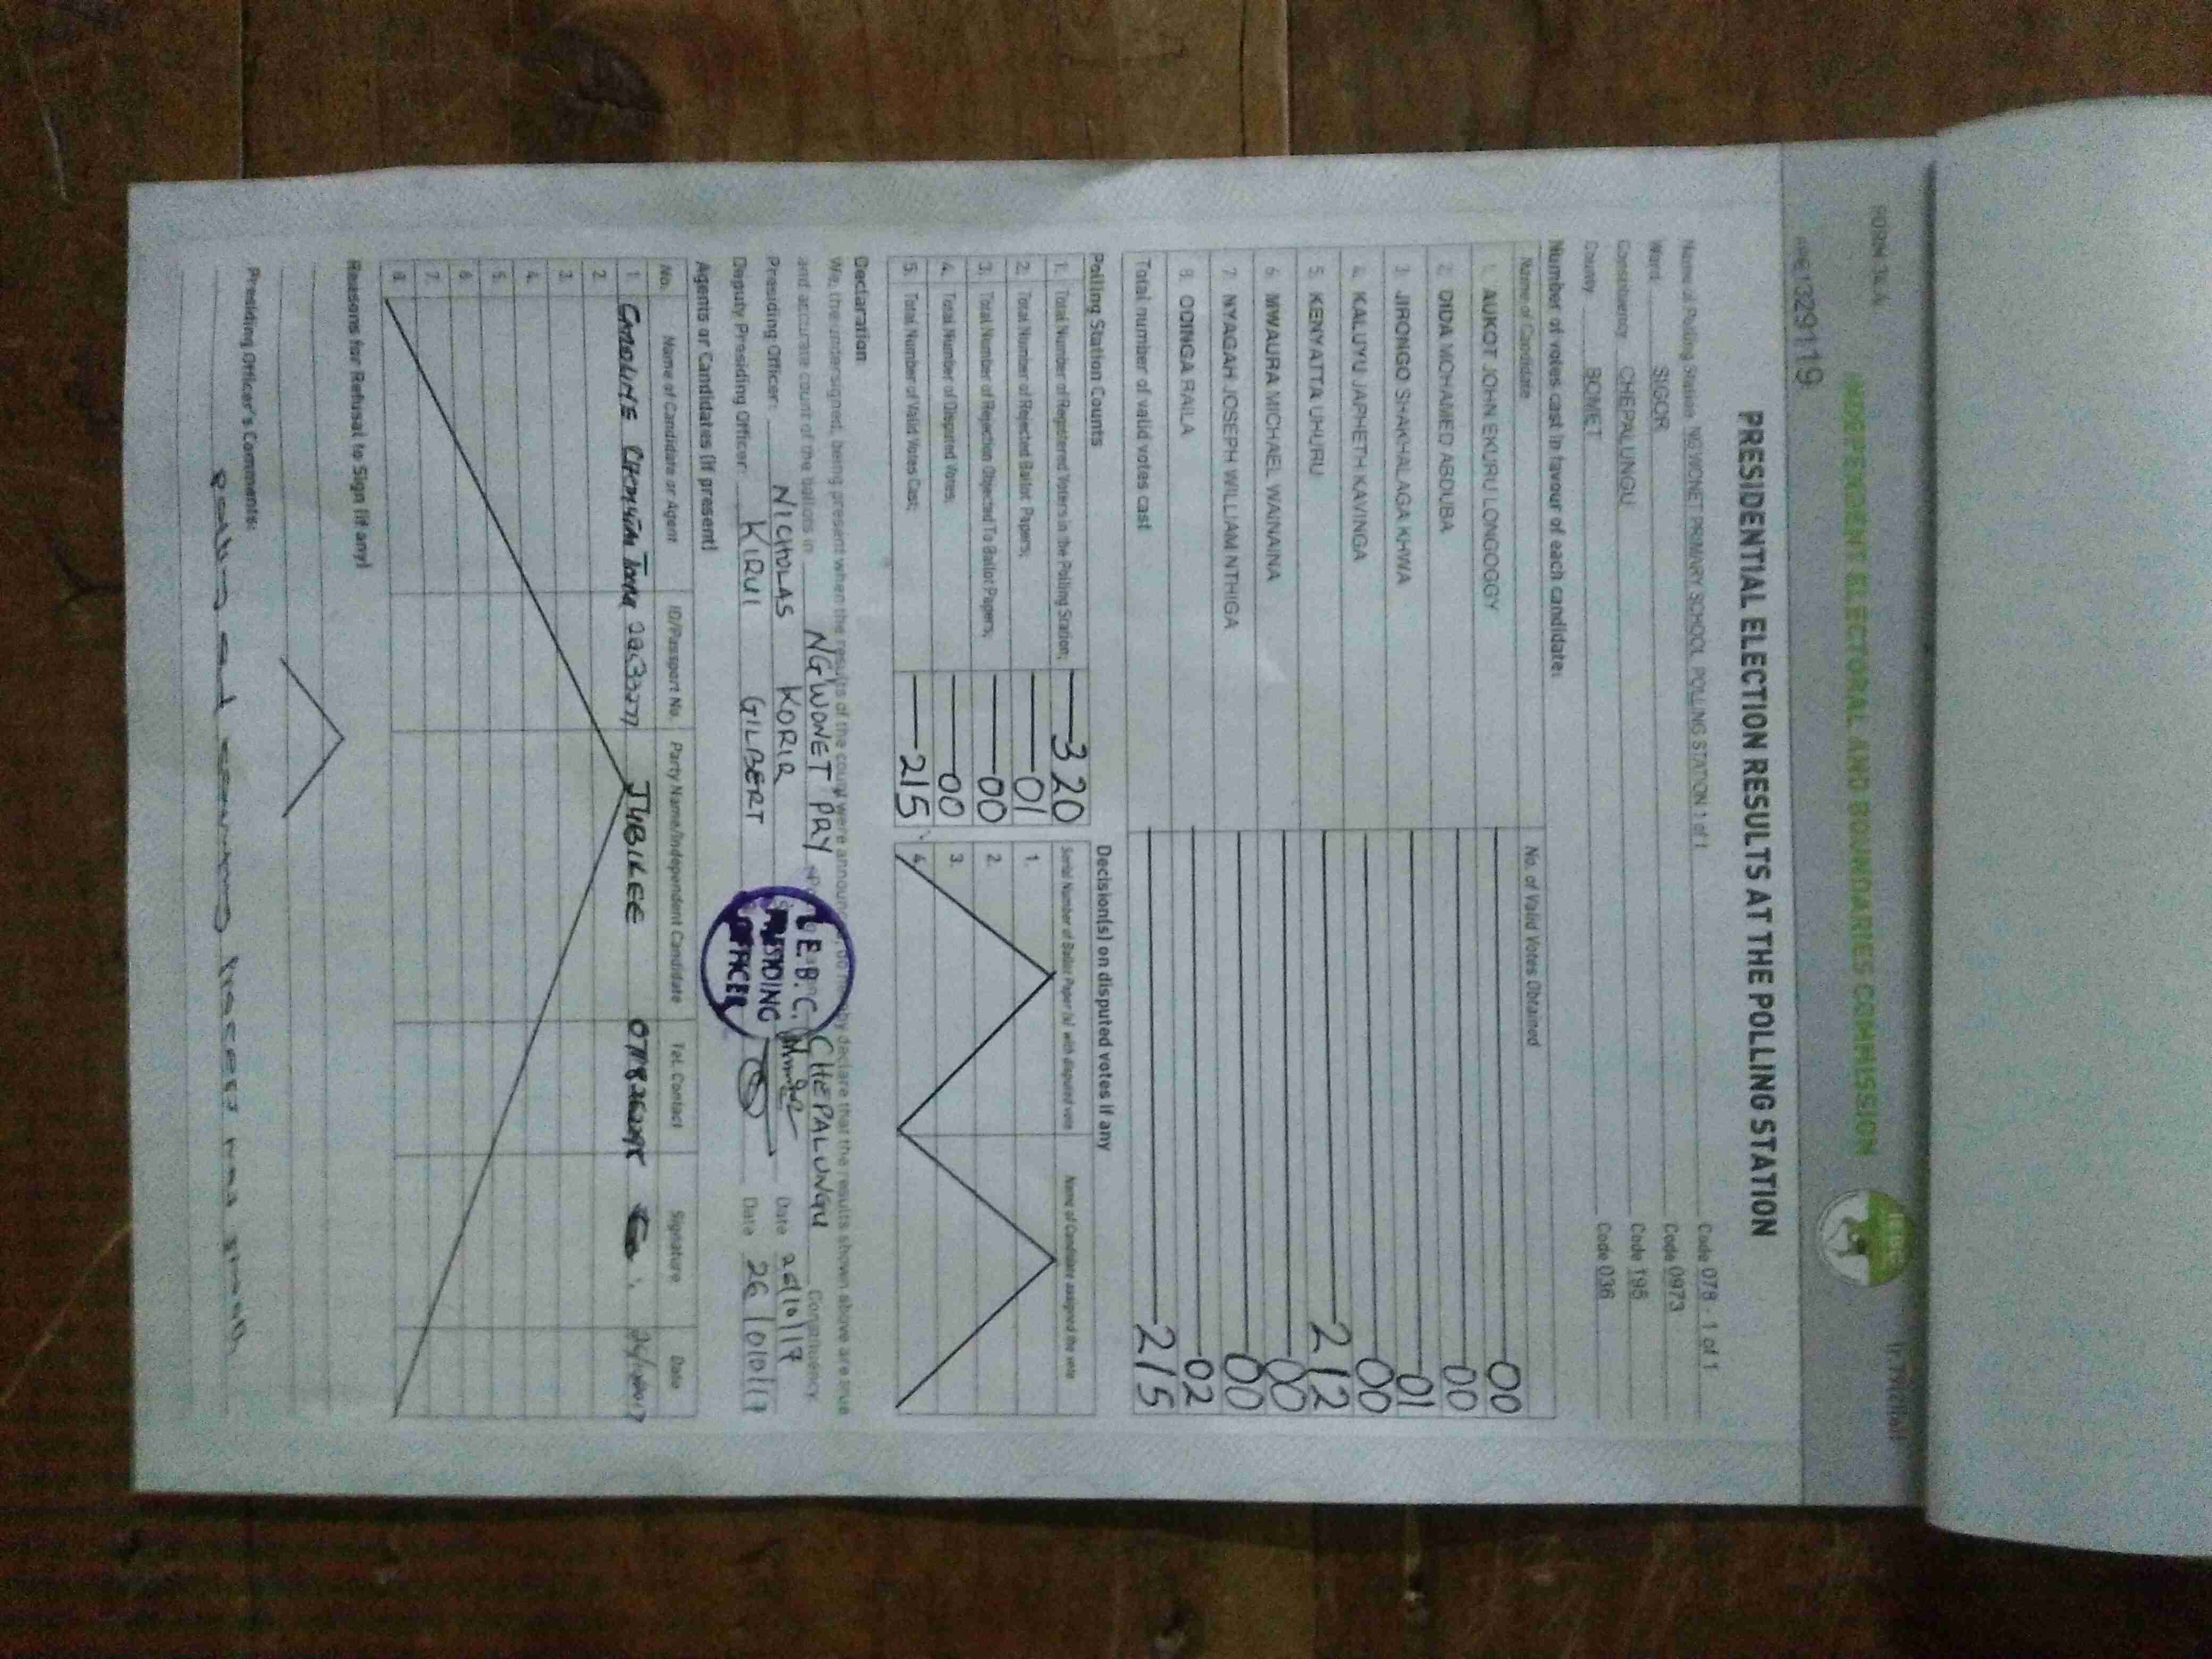 FORM 34A
INDEPENDENT ELECTORAL AND BOUNDARIES COMMISSION
IEBC
1329119
PRESIDENTIAL ELECTION RESULTS AT THE POLLING STATION
Name of Polling Station NG'WONET PRIMARY SCHOOL POLLING STATION 1 of 1 Code 078 - 1 of 1
Ward SIGOR Code 0973
Constituency CHEPALUNGU Code 195
County BOMET Code 036
Number of votes cast in favour of each candidate:
Name of Candidate No. of Valid Votes Obtained
1. AUKOT JOHN EKURU LONGOGGY 00
2. DIDA MOHAMED ABDUBA 00
3. JIRONGO SHAKHALAGA KHWA 01
4. KALUYU JAPHETH KAVINGA 00
5. KENYATTA UHURU 212
6. MWAURA MICHAEL WAINAINA 00
7. NYAGAH JOSEPH WILLIAM NTHIGA 00
8. ODINGA RAILA 02
Total number of valid votes cast 215
Polling Station Counts
1. Total Number of Registered Voters in the Polling Station; 320
2. Total Number of Rejected Ballot Papers; 01
3. Total Number of Rejection Objected To Ballot Papers; 00
4. Total Number of Disputed Votes; 00
5. Total Number of Valid Votes Cast; 215
Decision(s) on disputed votes if any
Serial Number of Ballot Paper (s) with disputed vote Name of Candidate assigned the vote
1.
2.
3.
4.
Declaration
We, the undersigned, being present when the results of the count were announced, do hereby declare that the results shown above are true
and accurate count of the ballots in NG'WONET PRY CHEPALUNGU Constituency
Presiding Officer: NICHOLAS KORIR Date 26/10/17
Deputy Presiding Officer: KIRUI GILBERT Date 26/10/17
I.E.B.C.
PRESIDING
OFFICER
Agents or Candidates (if present)
No. Name of Candidate or Agent ID/Passport No. Party Name/Independent Candidate Tel. Contact Signature Date
1. JUBILEE
2.
3.
4.
5.
6.
7.
8.
Reasons for Refusal to Sign (if any)
Presiding Officer's Comments: